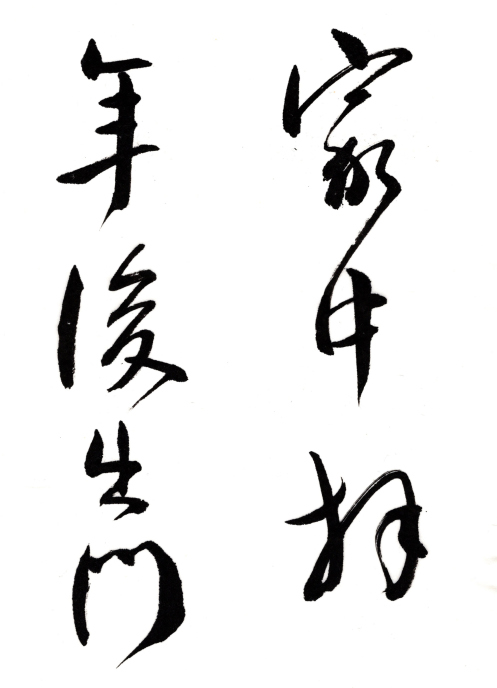 家中拜
年後生門